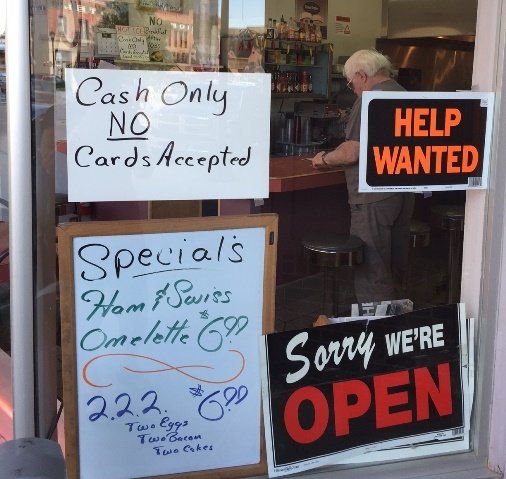 NO
Cash Only
NO
Cards Accepted
HELP
WANTED
Special's
Ham & Swiss
Omelette $6.99
2.2.2. $6.99
Two Eggs
Two Bacon
Two Cakes
Sorry WE'RE
OPEN